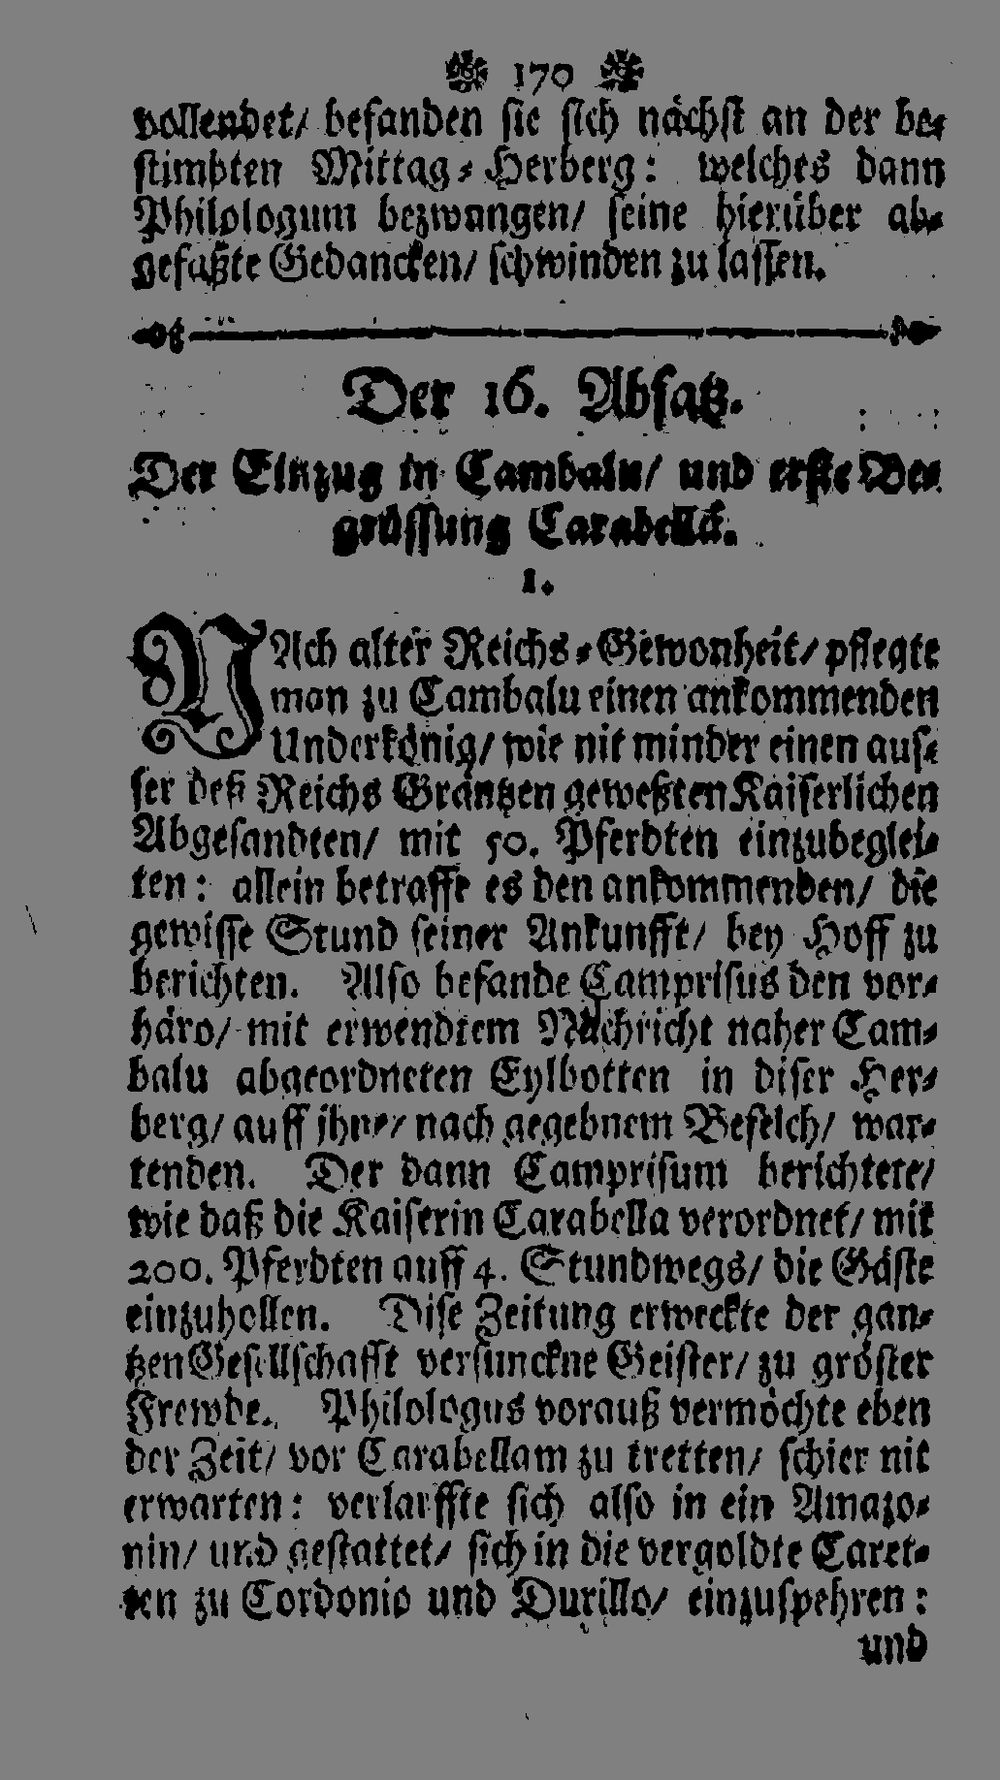 170
vollendet/ befanden sie sich nächst an der be-
stimbten Mittag-Herberg: welches dann
Philologum bezwangen/ seine hierüber ab-
gefaßte Gedancken/ schwinden zu lassen.
Der 16. Absatz.
Der Einzug in Cambalu/ und erste Be-
grüssung Carabellæ.
1.
NAch alter Reichs-Gewonheit/ pflegte
man zu Cambalu einen ankommenden
Underkönig/ wie nit minder einen aus-
ser deß Reichs Gräntzen geweßten Kaiserlichen
Abgesandten/ mit 50. Pferdten einzubeglei-
ten: allein betraffe es den ankommenden/ die
gewisse Stund seiner Ankunfft/ bey Hoff zu
berichten. Also befande Camprisus den vor-
häro/ mit erwendtem Nachricht naher Cam-
balu abgeordneten Eylbotten in diser Her-
berg/ auff jhne/ nach gegebnem Befelch/ war-
tenden. Der dann Camprisum berichtete/
wie daß die Kaiserin Carabella verordnet/ mit
200. Pferdten auff 4. Stundwegs/ die Gäste
einzuhollen. Dise Zeitung erweckte der gan-
tzen Gesellschafft versunckne Geister/ zu gröster
Frewde. Philologus vorauß vermöchte eben
der Zeit/ vor Carabellam zu tretten/ schier nit
erwarten: verlarffte sich also in ein Amazo-
nin/ und gestattet/ sich in die vergoldte Caret-
ten zu Cordonio und Durillo/ einzuspehren:
und